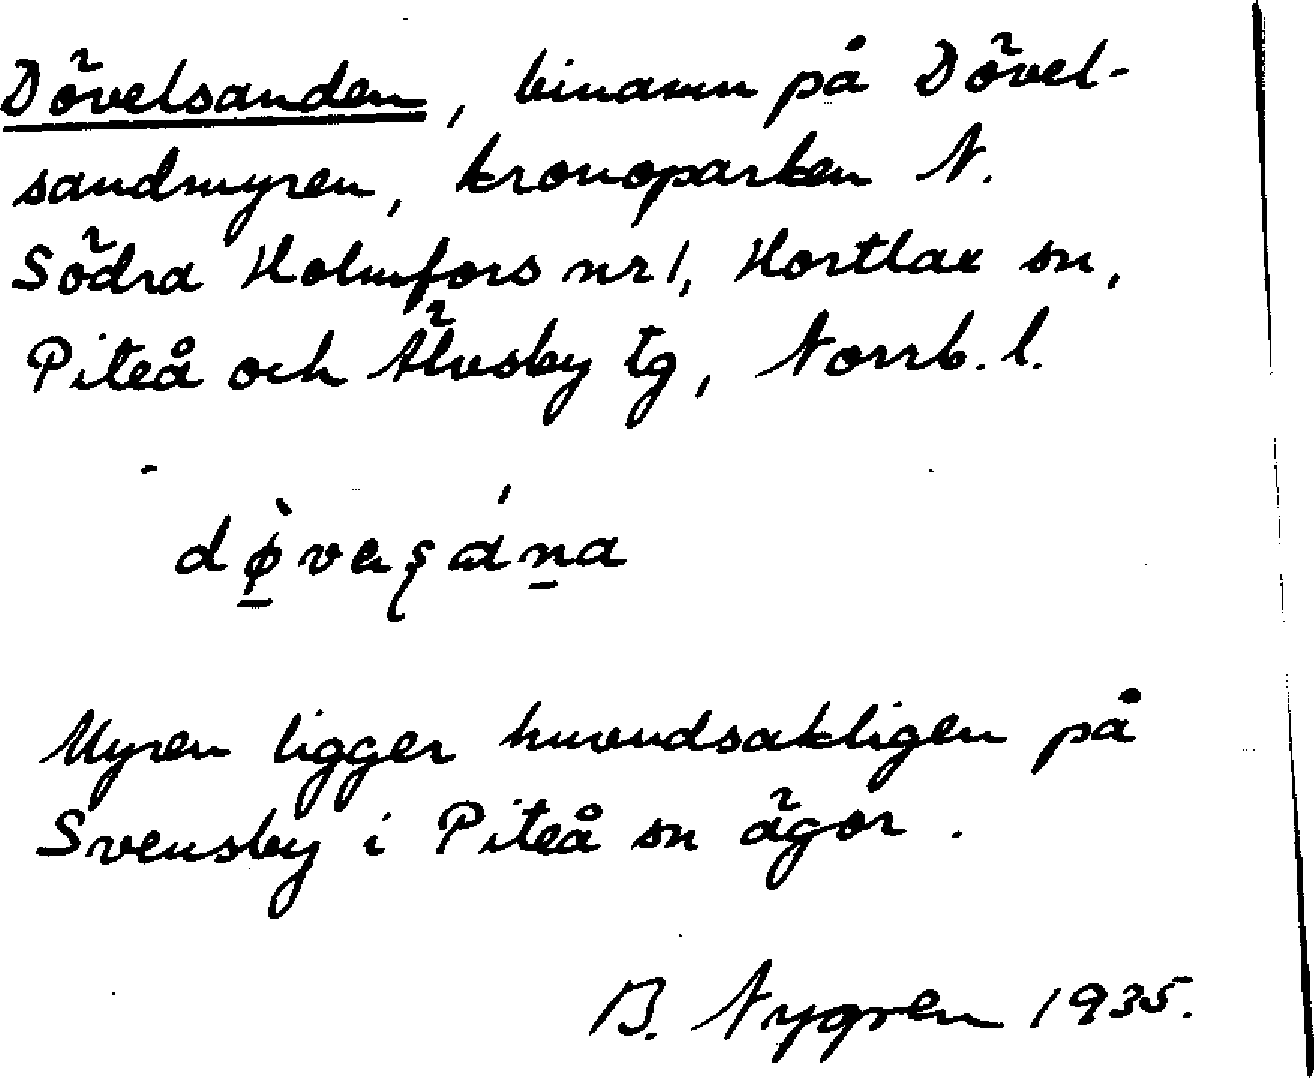 Dövelsanden, binamn på Dövel-
sandmyren, kronoparken N.
Södra Holmfors nr 1, Hortlax sn,
Piteå och Älvsby tg, Norrb. l.
dø̀vaʂána
Myren ligger huvudsakligen på
Svensby i Piteå sn ägor.
B. Nygren 1935.